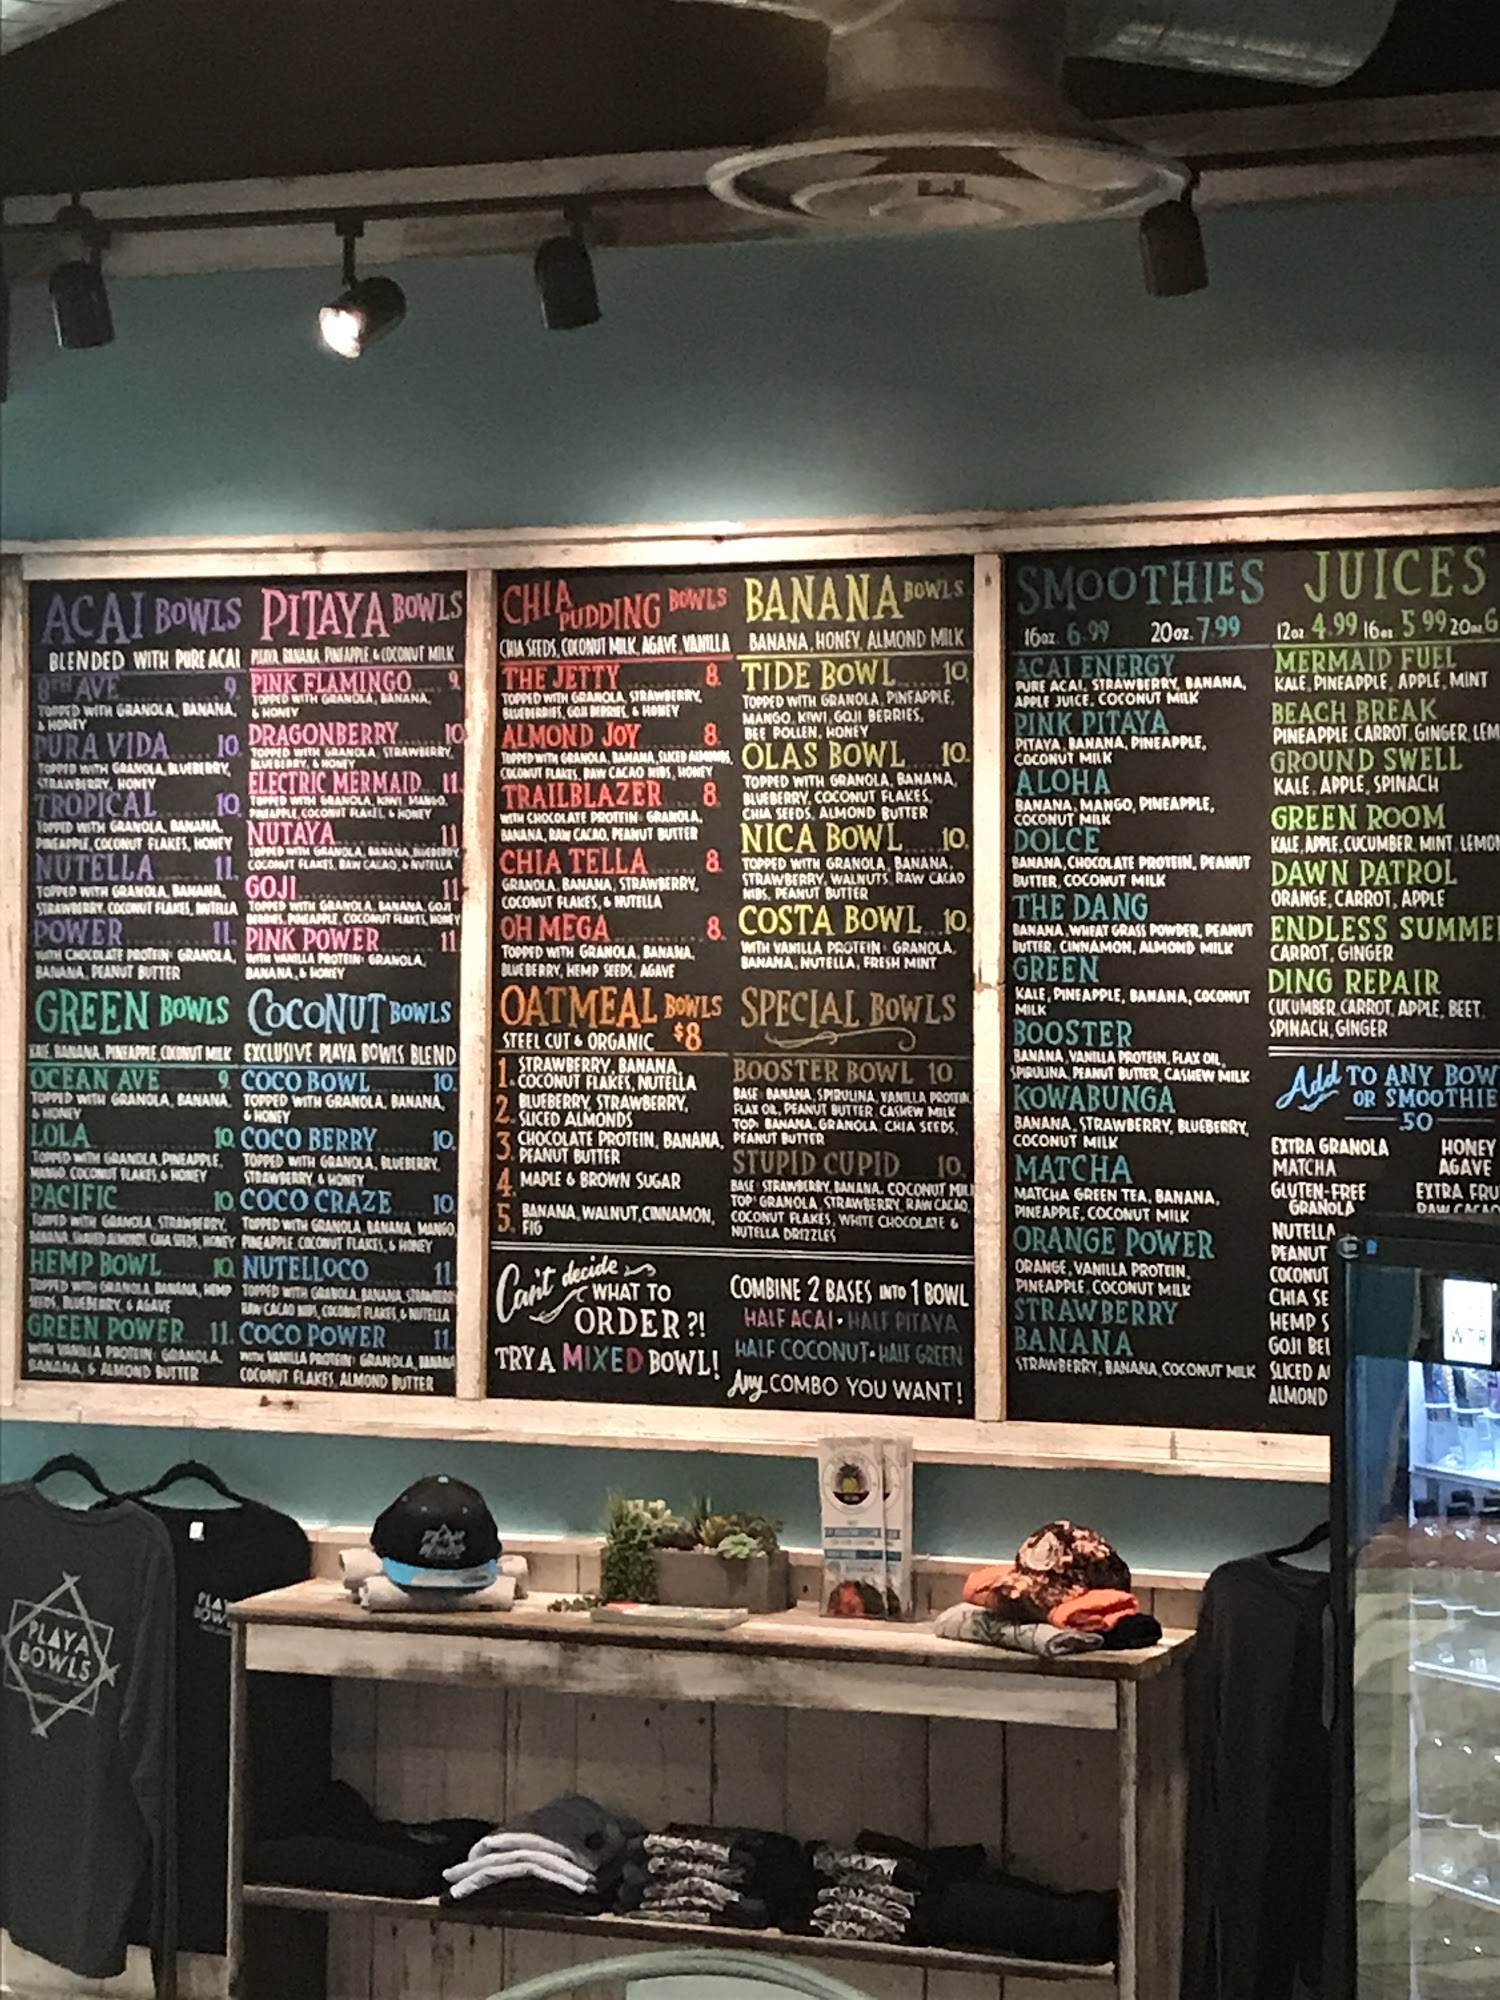 ACAI BOWLS
BLENDED WITH PURE ACAI
8TH AVE 9.
TOPPED WITH GRANOLA, BANANA,
& HONEY
PURA VIDA 10.
TOPPED WITH GRANOLA, BLUEBERRY,
STRAWBERRY, HONEY
TROPICAL 10.
TOPPED WITH GRANOLA, BANANA,
PINEAPPLE, COCONUT FLAKES, HONEY
NUTELLA 11.
TOPPED WITH GRANOLA, BANANA,
STRAWBERRY, COCONUT FLAKES, NUTELLA
POWER 11.
WITH CHOCOLATE PROTEIN: GRANOLA,
BANANA, PEANUT BUTTER
GREEN BOWLS
KALE, BANANA, PINEAPPLE, COCONUT MILK
OCEAN AVE 9.
TOPPED WITH GRANOLA, BANANA,
& HONEY
LOLA 10.
TOPPED WITH GRANOLA, PINEAPPLE,
MANGO, COCONUT FLAKES & HONEY
PACIFIC 10.
TOPPED WITH GRANOLA, STRAWBERRY,
BANANA, SHAVED ALMONDS, CHIA SEEDS, HONEY
HEMP BOWL 10.
TOPPED WITH GRANOLA, BANANA, HEMP
SEEDS, BLUEBERRY, & AGAVE
GREEN POWER 11.
WITH VANILLA PROTEIN: GRANOLA,
BANANA, & ALMOND BUTTER
PITAYA BOWLS
PITAYA, BANANA, PINEAPPLE, & COCONUT MILK
PINK FLAMINGO 9.
TOPPED WITH GRANOLA, BANANA,
& HONEY
DRAGONBERRY 10
TOPPED WITH GRANOLA, STRAWBERRY,
BLUEBERRY, & HONEY
ELECTRIC MERMAID 11.
TOPPED WITH GRANOLA, KIWI, MANGO,
PINEAPPLE, COCONUT FLAKES, & HONEY
NUTAYA 11
TOPPED WITH GRANOLA, BANANA, BLUEBERRY,
COCONUT FLAKES, RAW CACAO, & NUTELLA
GOJI 11
TOPPED WITH GRANOLA, BANANA, GOJI
BERRIES, PINEAPPLE, COCONUT FLAKES, HONEY
PINK POWER 11
WITH VANILLA PROTEIN: GRANOLA,
BANANA, & HONEY
COCONUT BOWLS
EXCLUSIVE PLAYA BOWLS BLEND
COCO BOWL 10.
TOPPED WITH GRANOLA, BANANA,
& HONEY
COCO BERRY 10.
TOPPED WITH GRANOLA, BLUEBERRY,
STRAWBERRY, & HONEY
COCO CRAZE 10.
TOPPED WITH GRANOLA, BANANA, MANGO,
PINEAPPLE, COCONUT FLAKES, & HONEY
NUTELLOCO 11.
TOPPED WITH GRANOLA, BANANA, STRAWBERRY
RAW CACAO NIBS, COCONUT FLAKES & NUTELLA
COCO POWER 11.
WITH VANILLA PROTEIN: GRANOLA, BANANA
COCONUT FLAKES, ALMOND BUTTER
CHIA PUDDING BOWLS
CHIA SEEDS, COCONUT MILK, AGAVE, VANILLA
THE JETTY 8.
TOPPED WITH GRANOLA, STRAWBERRY,
BLUEBERRIES, GOJI BERRIES, & HONEY
ALMOND JOY 8.
TOPPED WITH GRANOLA, BANANA, SLICED ALMONDS,
COCONUT FLAKES, RAW CACAO NIBS, HONEY
TRAILBLAZER 8.
WITH CHOCOLATE PROTEIN: GRANOLA,
BANANA, RAW CACAO, PEANUT BUTTER
CHIA TELLA 8.
GRANOLA, BANANA, STRAWBERRY,
COCONUT FLAKES, & NUTELLA
OH MEGA 8.
TOPPED WITH GRANOLA, BANANA,
BLUEBERRY, HEMP SEEDS, AGAVE
OATMEAL BOWLS
STEEL CUT & ORGANIC $8
1. STRAWBERRY, BANANA,
COCONUT FLAKES, NUTELLA
2. BLUEBERRY, STRAWBERRY,
SLICED ALMONDS
3. CHOCOLATE PROTEIN, BANANA,
PEANUT BUTTER
4. MAPLE & BROWN SUGAR
5. BANANA, WALNUT, CINNAMON,
FIG
BANANA BOWLS
BANANA, HONEY, ALMOND MILK
TIDE BOWL 10.
TOPPED WITH GRANOLA, PINEAPPLE,
MANGO, KIWI, GOJI BERRIES,
BEE POLLEN, HONEY
OLAS BOWL 10.
TOPPED WITH GRANOLA, BANANA,
BLUEBERRY, COCONUT FLAKES,
CHIA SEEDS, ALMOND BUTTER
NICA BOWL 10.
TOPPED WITH GRANOLA, BANANA,
STRAWBERRY, WALNUTS, RAW CACAO
NIBS, PEANUT BUTTER
COSTA BOWL 10.
WITH VANILLA PROTEIN: GRANOLA,
BANANA, NUTELLA, FRESH MINT
SPECIAL BOWLS
BOOSTER BOWL 10
BASE: BANANA, SPIRULINA, VANILLA PROTEIN,
FLAX OIL, PEANUT BUTTER, CASHEW MILK
TOP: BANANA, GRANOLA, CHIA SEEDS,
PEANUT BUTTER
STUPID CUPID 10.
BASE: STRAWBERRY, BANANA, COCONUT MILK
TOP: GRANOLA, STRAWBERRY, RAW CACAO,
COCONUT FLAKES, WHITE CHOCOLATE &
NUTELLA DRIZZLES
Can't decide
WHAT TO
ORDER?!
TRY A MIXED BOWL!
COMBINE 2 BASES INTO 1 BOWL
HALF ACAI • HALF PITAYA
HALF COCONUT • HALF GREEN
Any COMBO YOU WANT!
SMOOTHIES
16oz. 6.99 20oz. 7.99
ACAI ENERGY
PURE ACAI, STRAWBERRY, BANANA,
APPLE JUICE, COCONUT MILK
PINK PITAYA
PITAYA, BANANA, PINEAPPLE,
COCONUT MILK
ALOHA
BANANA, MANGO, PINEAPPLE,
COCONUT MILK
DOLCE
BANANA, CHOCOLATE PROTEIN, PEANUT
BUTTER, COCONUT MILK
THE DANG
BANANA, WHEAT GRASS POWDER, PEANUT
BUTTER, CINNAMON, ALMOND MILK
GREEN
KALE, PINEAPPLE, BANANA, COCONUT
MILK
BOOSTER
BANANA, VANILLA PROTEIN, FLAX OIL,
SPIRULINA, PEANUT BUTTER, CASHEW MILK
KOWABUNGA
BANANA, STRAWBERRY, BLUEBERRY,
COCONUT MILK
MATCHA
MATCHA GREEN TEA, BANANA,
PINEAPPLE, COCONUT MILK
ORANGE POWER
ORANGE, VANILLA PROTEIN,
PINEAPPLE, COCONUT MILK
STRAWBERRY
BANANA
STRAWBERRY, BANANA, COCONUT MILK
JUICES
12oz 4.99 16oz 5.99 20oz 6
MERMAID FUEL
KALE, PINEAPPLE, APPLE, MINT
BEACH BREAK
PINEAPPLE, CARROT, GINGER, LEM
GROUND SWELL
KALE, APPLE, SPINACH
GREEN ROOM
KALE, APPLE, CUCUMBER, MINT, LEMON
DAWN PATROL
ORANGE, CARROT, APPLE
ENDLESS SUMME
CARROT, GINGER
DING REPAIR
CUCUMBER, CARROT, APPLE, BEET,
SPINACH, GINGER
Add TO ANY BOW
OR SMOOTHIE
.50
EXTRA GRANOLA
MATCHA
GLUTEN-FREE
GRANOLA
NUTELLA
PEANUT
COCONUT
CHIA SE
HEMP S
GOJI BE
SLICED A
ALMOND
HONEY
AGAVE
EXTRA FRU
RAW CACAO
WTR
PLAYA
BOWLS
PLAYA
BOWLS